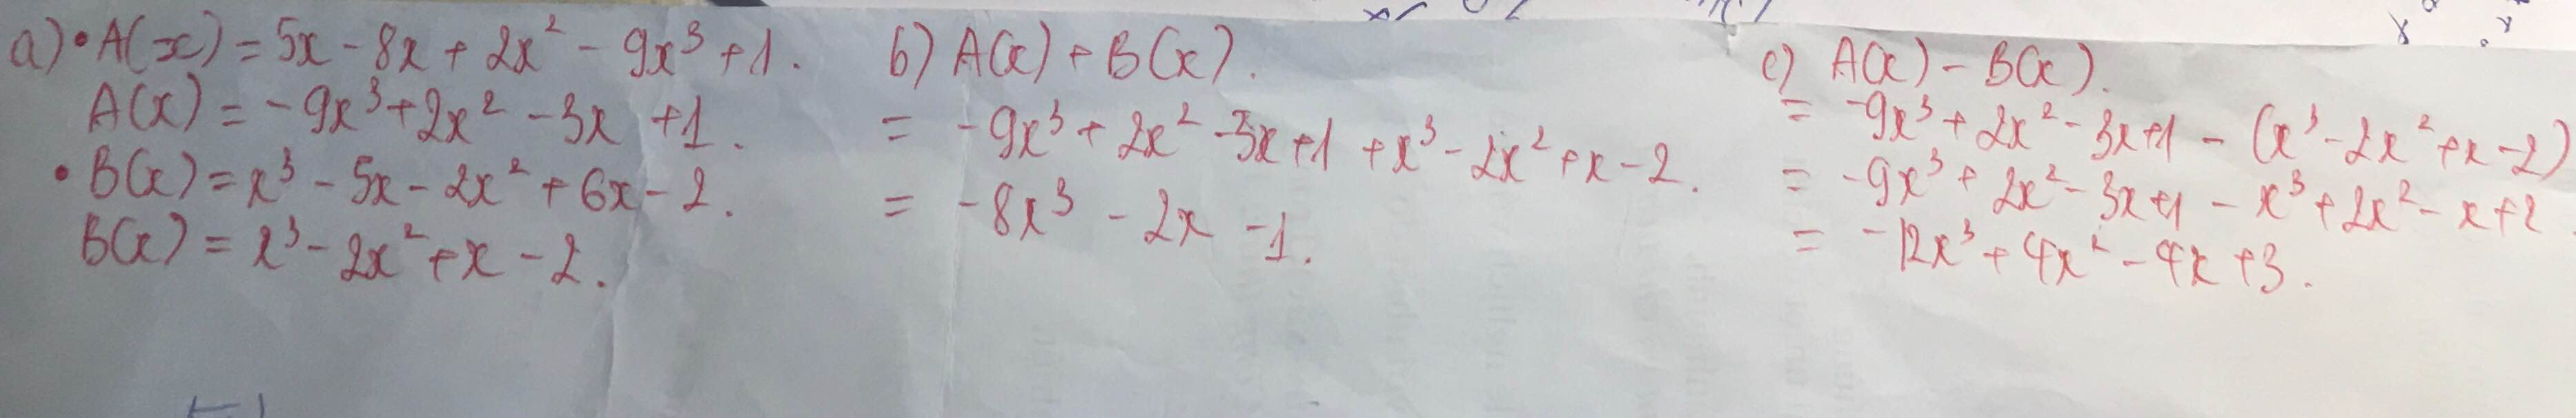 a) • A(x) = 5x - 8x + 2x² - 9x³ + 1.
A(x) = -9x³ + 2x² - 3x + 1.
• B(x) = x³ - 5x - 2x² + 6x - 2.
B(x) = x³ - 2x² + x - 2.
b) A(x) + B(x).
= -9x³ + 2x² - 3x + 1 + x³ - 2x² + x - 2.
= -8x³ - 2x - 1.
c) A(x) - B(x).
= -9x³ + 2x² - 3x + 1 - (x³ - 2x² + x - 2)
= -9x³ + 2x² - 3x + 1 - x³ + 2x² - x + 2.
= -12x³ + 4x² - 4x + 3.